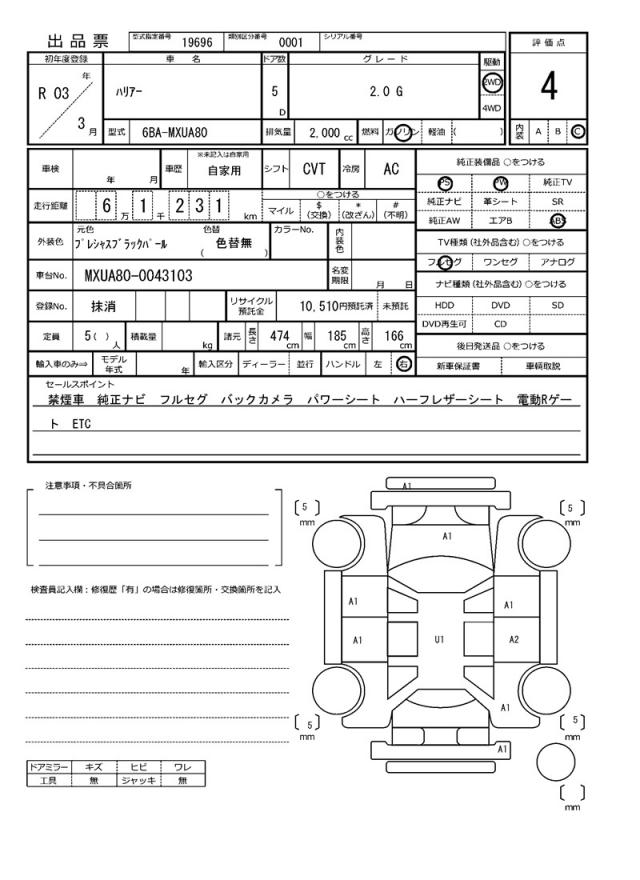 出品票 型式指定番号 19696 類別区分番号 0001 シリアル番号
評価点
4
初年度登録 車名 ドア数 グレード 駆動
R 03 年 3 月 ハリアー 5 D 2.0 G 2WD 4WD
型式 6BA-MXUA80 排気量 2,000 cc 燃料 ガソリン 軽油 ( ) 内装 A B C
車検 年 月 車歴 ※未記入は自家用 自家用 シフト CVT 冷房 AC
走行距離 6 万 1 千 2 3 1 km ○をつける
マイル $(交換) *(改ざん) #(不明)
外装色 元色 プレシャスブラックパール 色替 ( 色替無 ) カラーNo. 内装色
車台No. MXUA80-0043103 名変期限 月 日
登録No. 抹消 リサイクル預託金 10,510円預託済 未預託
定員 5( ) 人 積載量 kg 諸元 長さ 474 cm 幅 185 cm 高さ 166 cm
輸入車のみ⇒ モデル年式 年 輸入区分 ディーラー 並行 ハンドル 左 右
純正装備品 ○をつける
PS PW 純正TV
純正ナビ 革シート SR
純正AW エアB ABS
TV種類(社外品含む)○をつける
フルセグ ワンセグ アナログ
ナビ種類(社外品含む)○をつける
HDD DVD SD
DVD再生可 CD
後日発送品 ○をつける
新車保証書 車輌取説
セールスポイント
禁煙車 純正ナビ フルセグ バックカメラ パワーシート ハーフレザーシート 電動Rゲー
ト ETC
注意事項・不具合箇所
検査員記入欄:修復歴「有」の場合は修復箇所・交換箇所を記入
ドアミラー キズ ヒビ ワレ
工具 無 ジャッキ 無
A1
[5] mm
[5] mm
A1
A1
A1
A1
U1
A2
A1
[5] mm
[5] mm
A1
[ ] mm